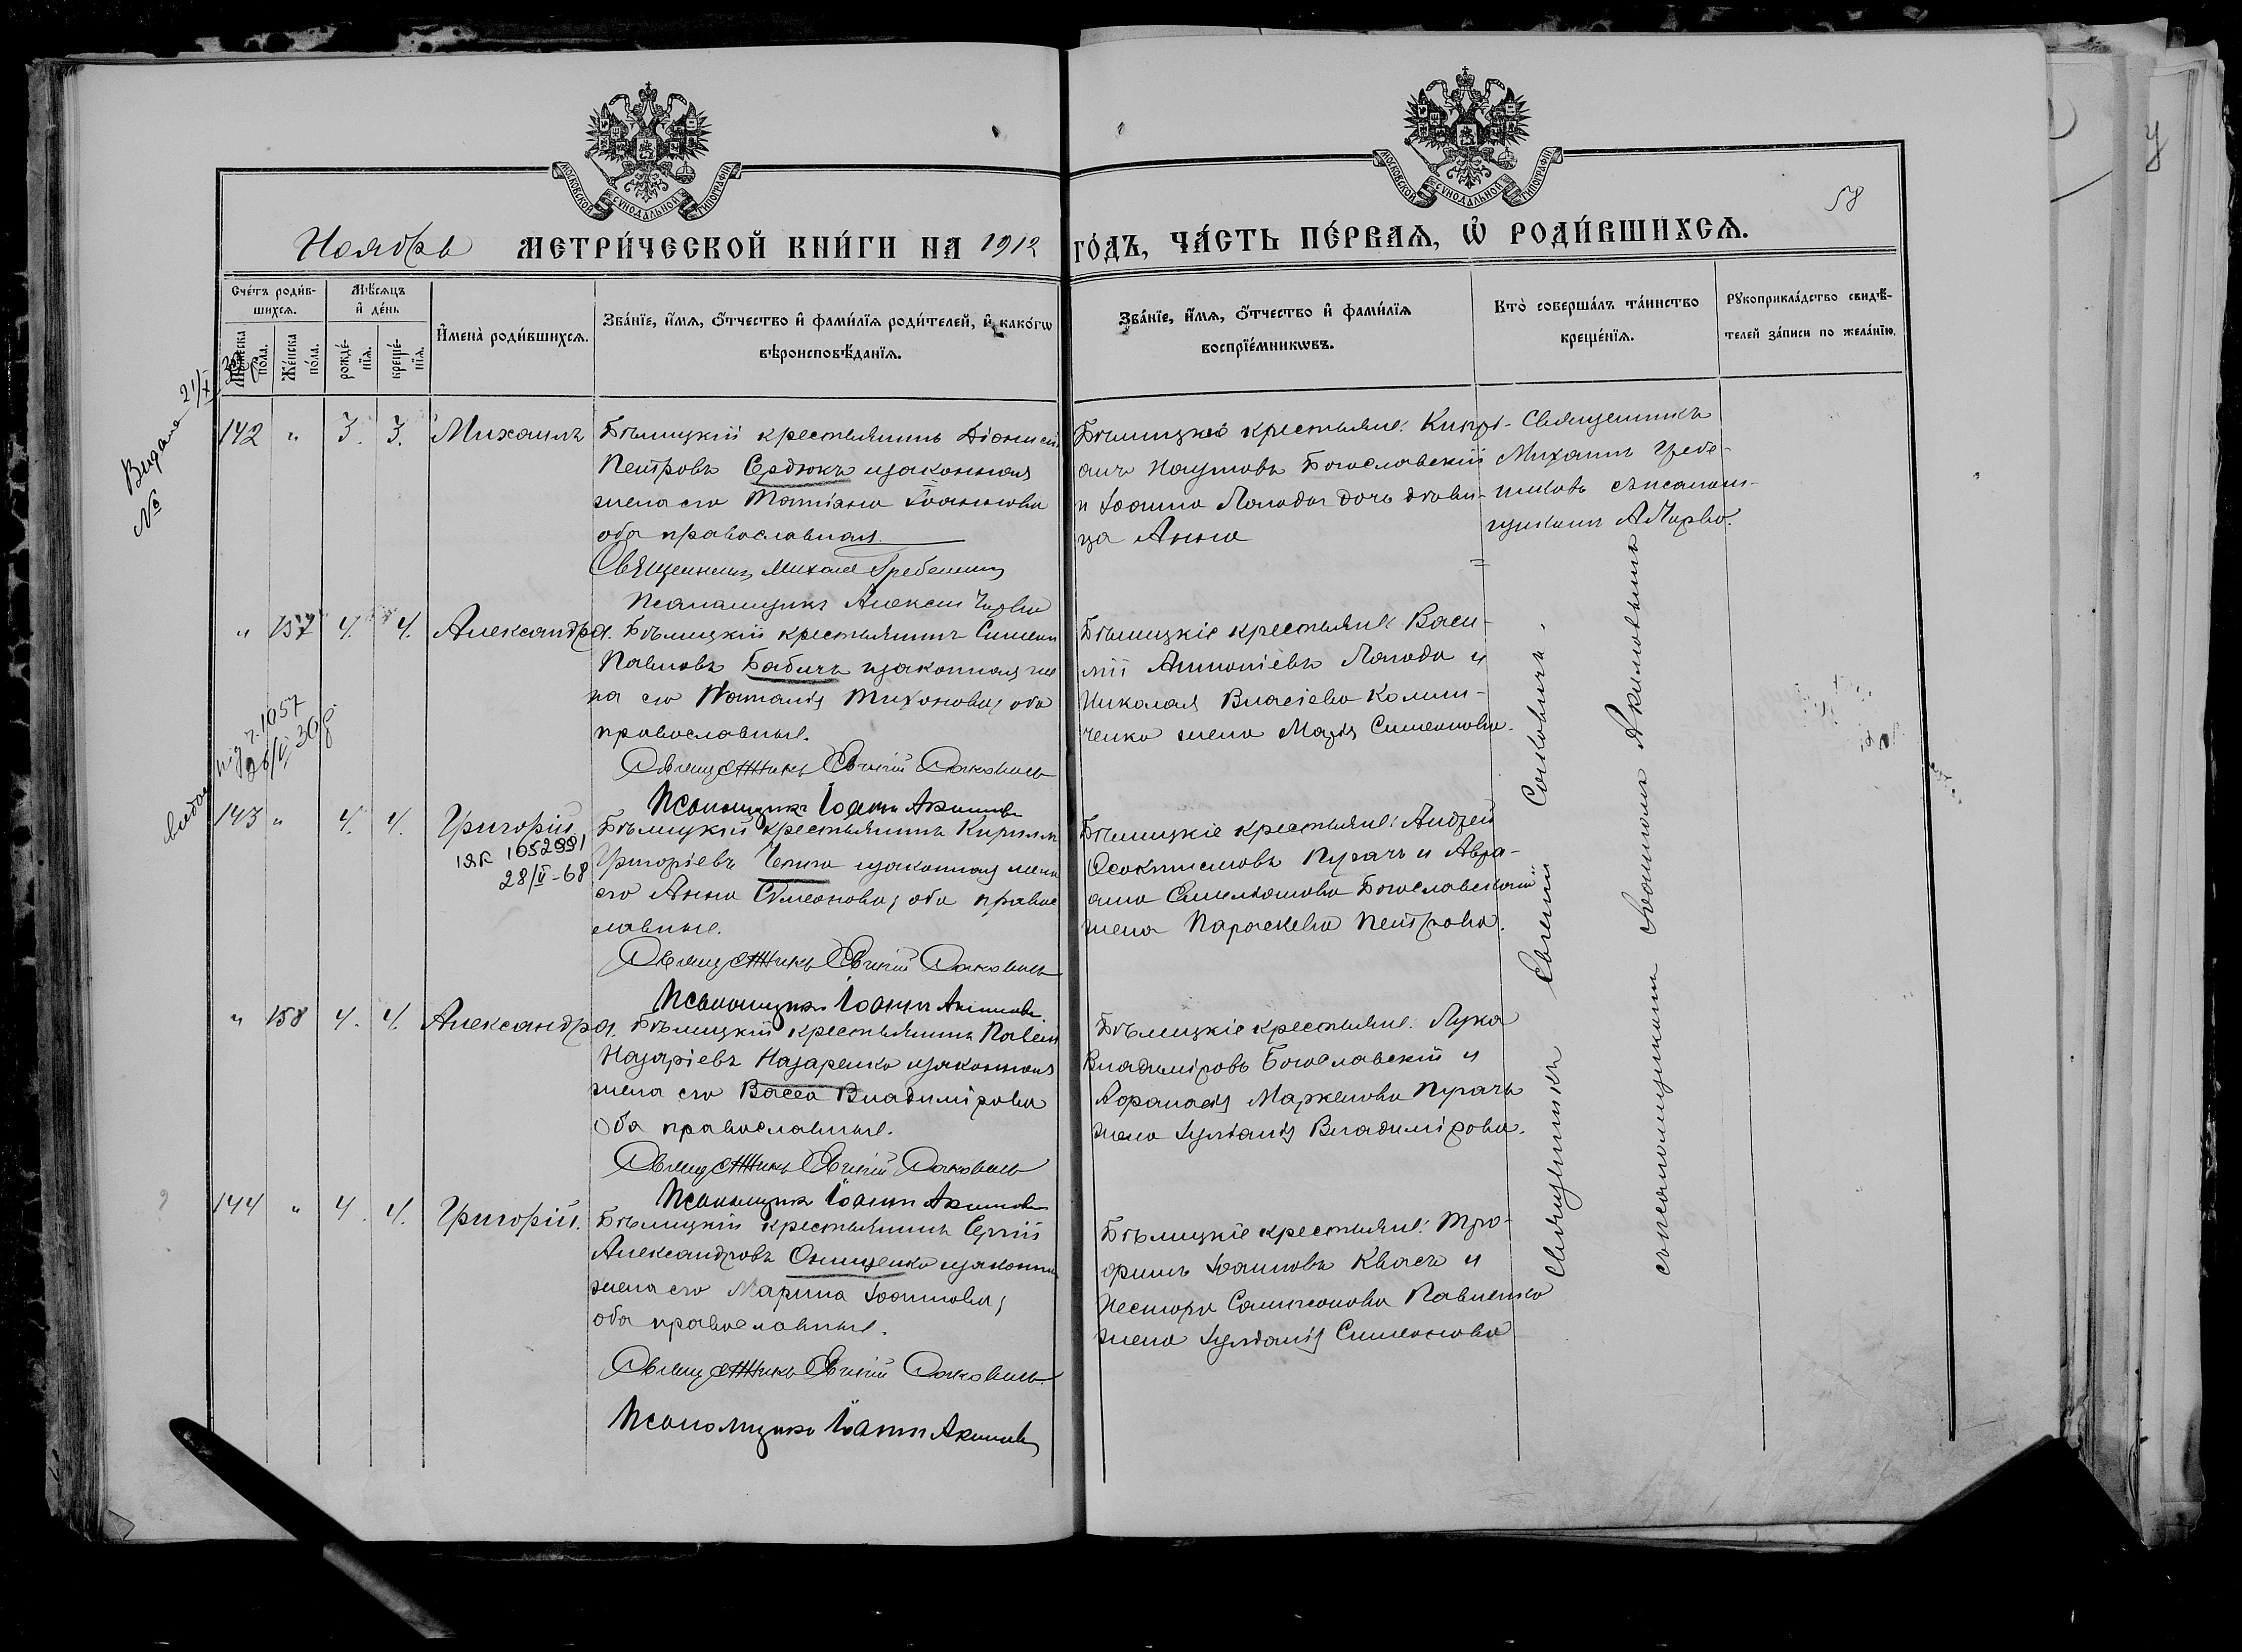 МОСКОВСКОЙ СѴНОДАЛЬНОЙ ТИПОГРАФІИ
МОСКОВСКОЙ СѴНОДАЛЬНОЙ ТИПОГРАФІИ
58
Ноябрь МЕТРИ́ЧЕСКОЙ КНИ́ГИ НА 1912
ГО́ДЪ, ЧА́СТЬ ПЕ́РВАЯ, Ѡ РОДИ́ВШИХСЯ.
Сче́тъ роди́в-
шихся.
Мѣ́сяцъ
и҆ де́нь
Му́жеска
по́ла.
Же́нска
по́ла.
рожде́-
нїя.
креще́-
нїя.
И҆мена̀ роди́вшихся.
Зва́нїе, и҆́мя, ѻ҆́тчество и҆ фами́лїя роди́телей, и҆ како́гѡ
вѣроисповѣ́данїя.
Зва́нїе, и҆́мя, ѻ҆́тчество и҆ фами́лїя
воспрїе́мникѡвъ.
Кто̀ соверша́лъ та́инство
креще́нїя.
Рꙋкоприкла́дство свидѣ́-
телей за́писи по жела́нїю.
Видано 21/X
№
142 " 3. 3. Михаилъ
Бѣлицкій крестьянинъ Діонисій
Петровъ Сердюкъ и законная
жена его Татіана Іоаннова
оба православная.
Священникъ Михаил Гребенник
Псаломщикъ Алексій Чирва
Бѣлицкіе крестьяне: Кипрі-
анъ Наумовъ Богославскій
и Іоанна Лагоды дочь дѣви-
ца Анна
Священникъ
Михаилъ Гребе-
никовъ съ псалом-
щикомъ А Чирва.
" 157 4. 4. Александра.
Бѣлицкій крестьянинъ Симеонъ
Павловъ Бабичъ и законная же
на его Наталія Тихонова, оба
православные.
Священникъ Евгеній Саковичъ
Псаломщикъ Іоаннъ Акимовъ
Бѣлицкіе крестьяне: Васи-
лій Антоніевъ Лагода и
Николая Власіева Колни-
ченко жена Марія Симеонова.
видан
під ч. 1057
26/V 36 р.
143 " 4. 4. Григорій
ІЯК 1052991
28/V-68
Бѣлицкій крестьянинъ Кириллъ
Григоріевъ Чепига и законная жена
его Анна Симеонова, оба правос
лавные.
Священникъ Евгеній Саковичъ
Псаломщикъ Іоаннъ Акимовъ
Бѣлицкіе крестьяне: Андрей
Феоктистовъ Пугачъ и Авра-
ама Емельянова Богославскаго
жена Параскева Петрова.
" 158 4. 4. Александра.
Бѣлицкій крестьянинъ Павелъ
Назаріевъ Назаренко и законная
жена его Васса Владимірова
Оба православные.
Священникъ Евгеній Саковичъ
Псаломщикъ Іоаннъ Акимовъ
Бѣлицкіе крестьяне: Лука
Владиміровъ Богославскій и
Афанасія Маркелова Пугачъ
жена Іуліанія Владимірова.
144 " 4. 4. Григорій.
Бѣлицкій крестьянинъ Сергій
Александровъ Онищенко и законная
жена его Марина Іоаннова,
оба православные.
Священникъ Евгеній Саковичъ
Псаломщикъ Іоаннъ Акимовъ
Бѣлицкіе крестьяне: Тро-
фимъ Іоанновъ Квасъ и
Нестора Сампсонова Павленко
жена Іуліанія Симеонова
Священникъ Евгеній Саковичъ
съ псаломщикомъ Іоанномъ Акимовымъ